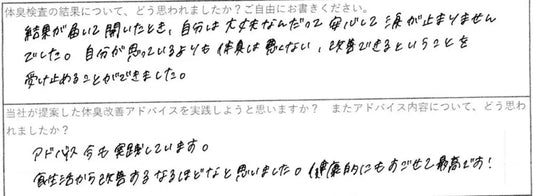 体臭検査の結果について、どう思われましたか?ご自由にお書きください。
結果が届いて開いたとき、自分は大丈夫なんだって安心して涙が止まりません
でした。自分が思っているよりも体臭は悪くない、改善できるということを
受け止めることができました。
当社が提案した体臭改善アドバイスを実践しようと思いますか? またアドバイス内容について、どう思わ
れましたか?
アドバイス今も実践しています。
食生活から改善するなるほどなと思いました。健康的にもすごせて最高です!